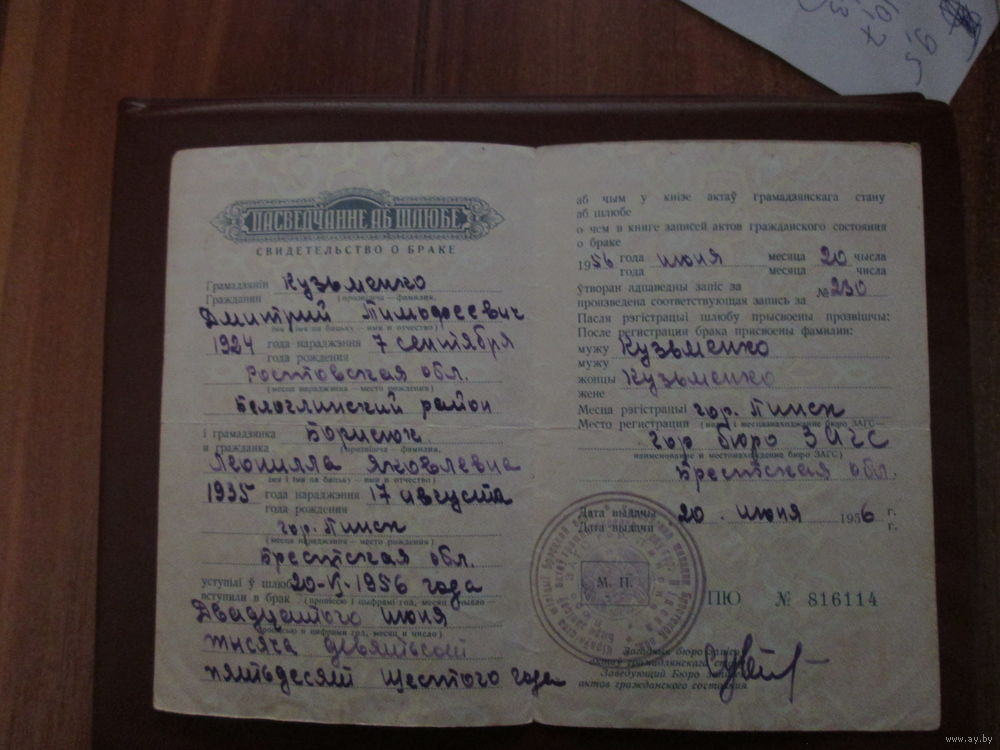 ПАСВЕДЧАННЕ АБ ШЛЮБЕ
СВИДЕТЕЛЬСТВО О БРАКЕ
Грамадзянін
Гражданин Кузьменко
(прозвішча — фамилия,
Дмитрий Тимофеевич
імя і імя па бацьку — имя и отчество)
1924 года нараджэння 7 сентября
года рождения
Ростовская обл.
(месца нараджэння — место рождения)
Белоглинский район
і грамадзянка Борисюк
и гражданка (прозвішча — фамилия,
Леонилла Яковлевна
імя і імя па бацьку — имя и отчество)
1935 года нараджэння 17 августа
года рождения
гор. Пинск
(месца нараджэння — место рождения)
Брестская обл.
уступілі ў шлюб 20-VI-1956 года
вступили в брак (прописью и цифрами год, месяц и число)
Двадцатого июня
тысяча девятьсот
пятьдесят шестого года
аб чым у кнізе актаў грамадзянскага стану
аб шлюбе
о чем в книге записей актов гражданского состояния
о браке
1956 года июня месяца 20 числа
года месяца числа
ўтворан адпаведны запіс за
произведена соответствующая запись за № 230
Пасля рэгістрацыі шлюбу прысвоены прозвішчы:
После регистрации брака присвоены фамилии:
мужу Кузьменко
мужу
жонцы Кузьменко
жене
Месца рэгістрацыі гор. Пинск
Место регистрации
гор бюро ЗАГС
наименование и местонахождение бюро ЗАГС)
Брестская обл.
Дата выдачы 20 июня 1956 г.
Дата выдачи г.
М. П.
ПЮ № 816114
Загадчык бюро запісу
актаў грамадзянскага стану
Заведующий Бюро записи
актов гражданского состояния
www.ay.by